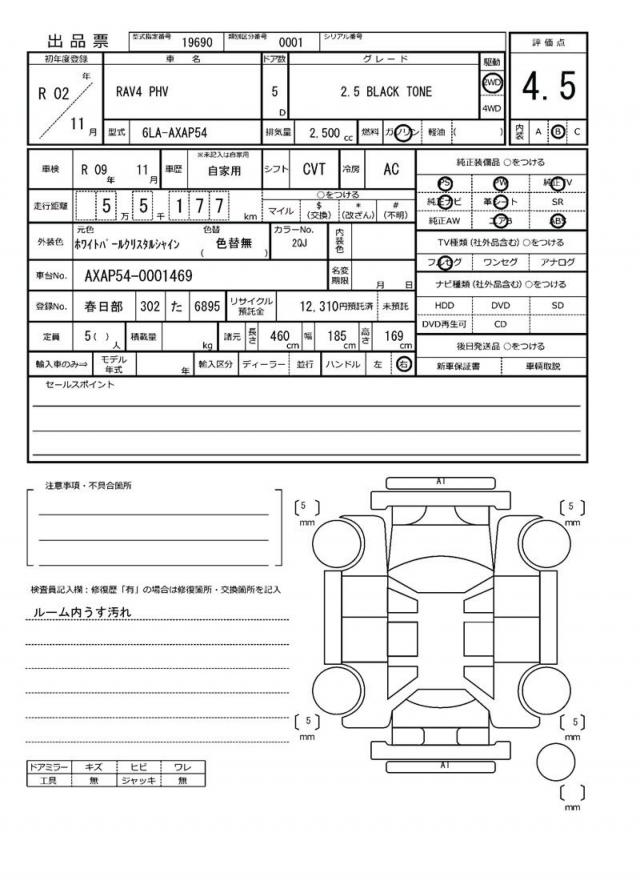 出品票 型式指定番号 19690 類別区分番号 0001 シリアル番号
初年度登録 車名 ドア数 グレード 駆動 評価点
R 02 年 11 月 RAV4 PHV 5 D 2.5 BLACK TONE 2WD 4WD 4.5
型式 6LA-AXAP54 排気量 2,500 cc 燃料 ガソリン 軽油 ( ) 内装 A B C
車検 R 09 年 11 月 車歴 ※未記入は自家用 自家用 シフト CVT 冷房 AC
走行距離 5 万 5 千 1 7 7 km ○をつける マイル $ (交換) * (改ざん) # (不明)
外装色 元色 ホワイトパールクリスタルシャイン 色替 ( 色替無 ) カラーNo. 2QJ 内装色
車台No. AXAP54-0001469 名変期限 月 日
登録No. 春日部 302 た 6895 リサイクル預託金 12,310円預託済 未預託
定員 5 ( ) 人 積載量 kg 諸元 長さ 460 cm 幅 185 cm 高さ 169 cm
輸入車のみ⇒ モデル年式 年 輸入区分 ディーラー 並行 ハンドル 左 右
純正装備品 ○をつける
PS PW 純正TV
純正ナビ 革シート SR
純正AW エアB ABS
TV種類 (社外品含む) ○をつける
フルセグ ワンセグ アナログ
ナビ種類 (社外品含む) ○をつける
HDD DVD SD
DVD再生可 CD
後日発送品 ○をつける
新車保証書 車輌取説
セールスポイント
注意事項・不具合箇所
検査員記入欄：修復歴「有」の場合は修復箇所・交換箇所を記入
ルーム内うす汚れ
ドアミラー キズ ヒビ ワレ
工具 無 ジャッキ 無
A1
5 mm
5 mm
5 mm
5 mm
A1
mm